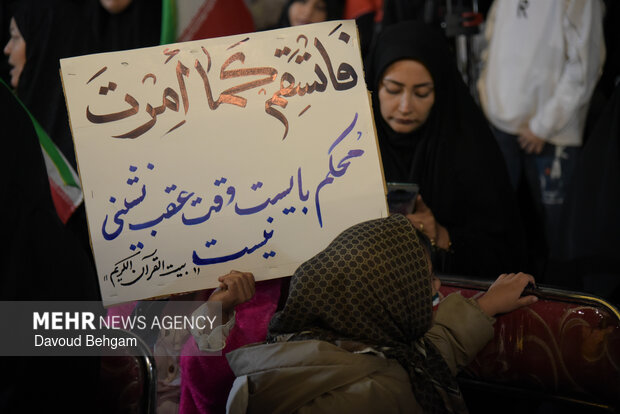 فاستقم کما أمرت
محکم بایست وقت عقب نشینی
نیست
"بیت القرآن الکریم"
MEHR NEWS AGENCY
Davoud Behgam